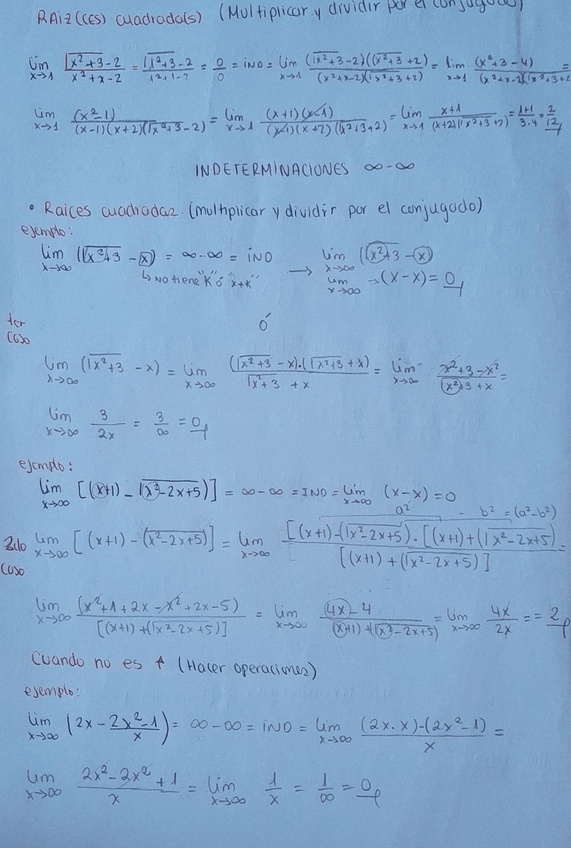 RAIZ(CES) CUADRADA(S) (Multiplicar y dividir por el conjugado)
lim x→1 √x²+3-2 / x²+x-2 = √1²+3-2 / 1²+1-2 = 0/0 = IND = lim x→1 (√x²+3-2)(√x²+3+2) / (x²+x-2)(√x²+3+2) = lim x→1 (x²+3-4) / (x²+x-2)(√x²+3+2) =
lim x→1 (x²-1) / (x-1)(x+2)(√x²+3-2) = lim x→1 (x+1)(x-1) / (x-1)(x+2)(√x²+3+2) = lim x→1 x+1 / (x+2)(√x²+3+2) = 1+1 / 3·4 = 2/12
INDETERMINACIONES ∞-∞
• Raices cuadradaz (multiplicar y dividir por el conjugado)
ejemplo:
lim x→∞ (√x²+3 - x) = ∞-∞ = IND → lim x→∞ (√x²+3 - x)
↳ No tiene "K" ó "x+K" lim x→∞ → (x-x) = 0
ó
1er caso
lim x→∞ (√x²+3 - x) = lim x→∞ (√x²+3 - x)·(√x²+3 + x) / √x²+3 + x = lim x→∞ x²+3-x² / √x²+3 + x =
lim x→∞ 3 / 2x = 3/∞ = 0
ejemplo:
lim x→∞ [(x+1) - √x²-2x+5)] = ∞-∞ = IND = lim x→∞ (x-x) = 0
a² - b² = (a²-b²)
2do caso lim x→∞ [(x+1) - (√x²-2x+5)] = lim x→∞ [(x+1)-(√x²-2x+5)·[(x+1)+(√x²-2x+5) / [(x+1)+(√x²-2x+5)] =
lim x→∞ (x²+1+2x-x²+2x-5) / [(x+1)+(√x²-2x+5)] = lim x→∞ 4x-4 / (x+1)+(√x²-2x+5) = lim x→∞ 4x / 2x == 2
Cuando no es √ (Hacer operaciones)
ejemplo:
lim x→∞ (2x - 2x²-1 / x) = ∞-∞ = IND = lim x→∞ (2x·x)-(2x²-1) / x =
lim x→∞ 2x²-2x²+1 / x = lim x→∞ 1/x = 1/∞ = 0